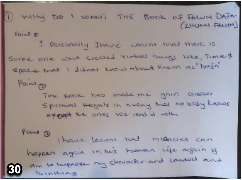 ① WHY DO I WANT THE BOOK OF FALUN DAFA.
(ZHUAN FALUN)
Point ①
I Personally have learnt that there is
some one who created virtual things like, Time &
space that I did not know about known as
Point ②
This Book has made me gain
Spiritual heights in a way that no body knows
except the ones who read it with.
Point ③
I have learnt that miracles can
happen again in this human life again if
am to improve my character and and
thinking.
30